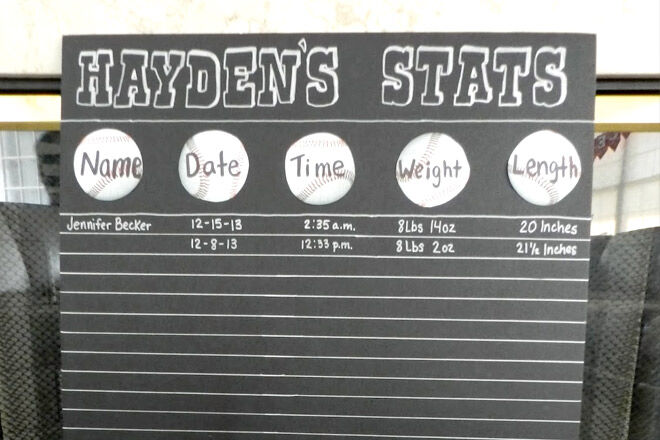 HAYDEN'S STATS
Name Date Time Weight Length
Jennifer Becker 12-15-13 2:35 a.m. 8Lbs 14oz 20 Inches
12-8-13 12:33 p.m. 8Lbs 2oz 21½ Inches